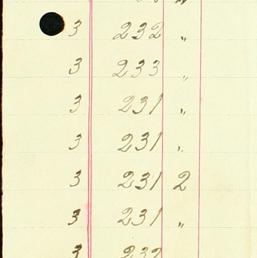 3 232 "
3 233 "
3 231 "
3 231 "
3 231 2
3 231 "
3 232